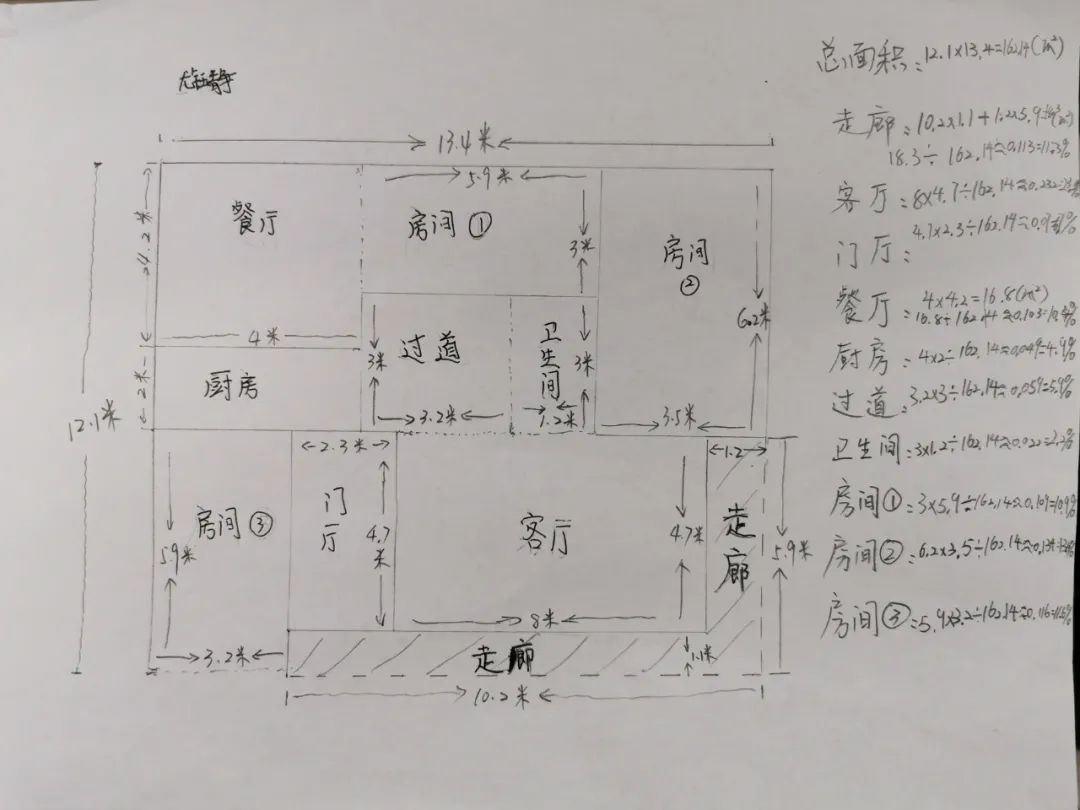 总面积：12.1×13.4=162.14(m²)
13.4米
走廊：10.2×1.1+1.2×5.9
18.3÷162.14≈0.113=11.3%
5.9米
餐厅
房间①
3米
4.2米
房间②
6.2米
客厅：8×4.7÷162.14≈0.232
4.7×2.3÷162.14≈
门厅：
餐厅：4×4.2=16.8(m²)
16.8÷162.14≈0.103=10.3%
4米
过道
3米
卫生间
3米
厨房
2米
3.2米
1.2米
3.5米
厨房：4×2÷162.14≈0.049=4.9%
过道：3.2×3÷162.14≈0.059=5.9%
12.1米
2.3米
1.2
卫生间：3×1.2÷162.14≈0.022=2.2%
房间③
5.9米
门厅
4.7米
客厅
4.7米
走廊
5.9米
房间①=3×5.9÷162.14≈0.109=10.9%
房间②：6.2×3.5÷162.14≈
房间③=5.9×3.2÷162.14≈0.116=
8米
3.2米
走廊
1.1米
10.2米